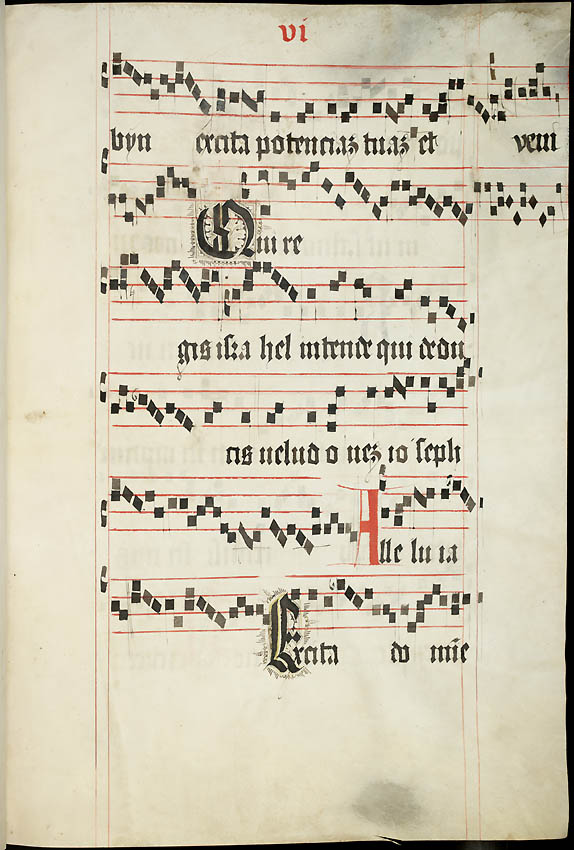 vi
byn excita potencias tuas et veni
Qui re
gis isra hel intende qui dedu
cis uelud o ues io seph
Alle lu ia
Excita do mie